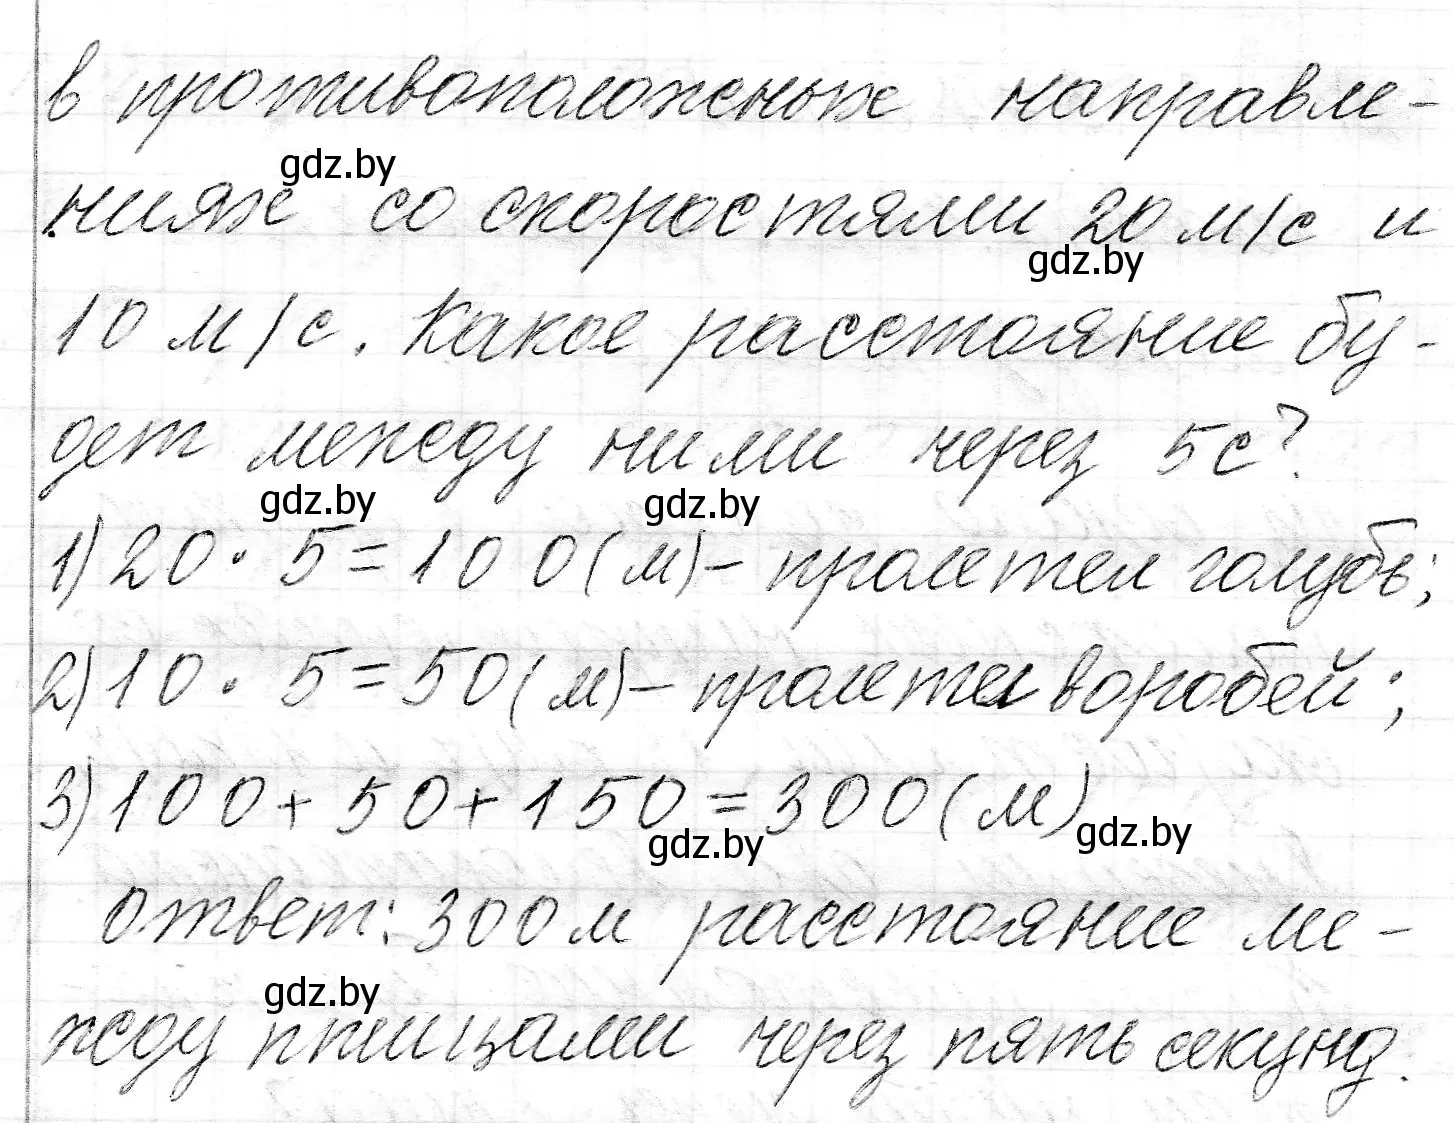 в противоположных направле-
gdz.by
ниях со скоростями 20 м/с и
gdz.by
10 м/с. Какое расстояние бу-
дет между ними через 5с?
gdz.by gdz.by
1) 20 · 5 = 100 (м) – пролетел голубь;
2) 10 · 5 = 50 (м) – пролетел воробей;
3) 100 + 50 + 150 = 300 (м)
gdz.by gdz.by
ответ: 300 м расстояние ме-
gdz.by
жду птицами через пять секунд.